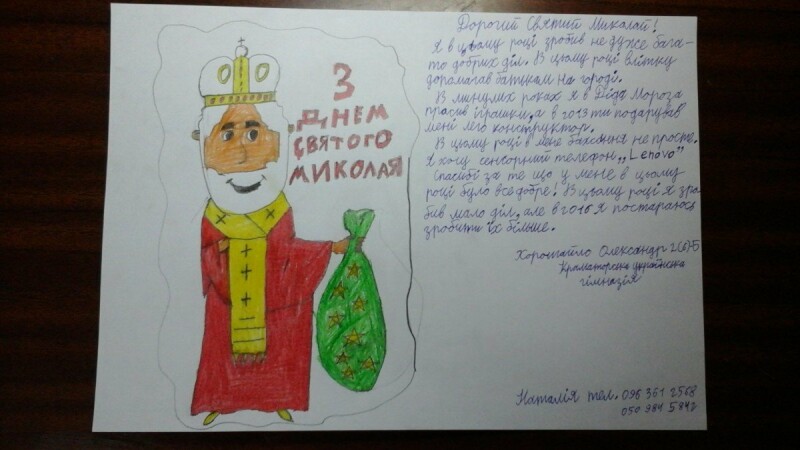 З
ДНЕМ
СВЯТОГО
МИКОЛАЯ
Дорогий Святий Миколай!
Я в цьому році зробив не дуже бага-
то добрих діл. В цьому році влітку
допомагав батькам на городі.
В минулих роках я в Діда Мороза
просив іграшки, а в 2013 ти подарував
мені лего конструктор.
В цьому році в мене бажання не просте.
Я хочу сенсорний телефон „Lenovo"
Спасибі за те що у мене в цьому
році було все добре! В цьому році я зро
бив мало діл, але в 2016 я постараюсь
зробити їх більше.
Олександр 2(6)-Б
Краматорська українська
гімназія
Наталія тел. 095 361 2568
050 984 5842